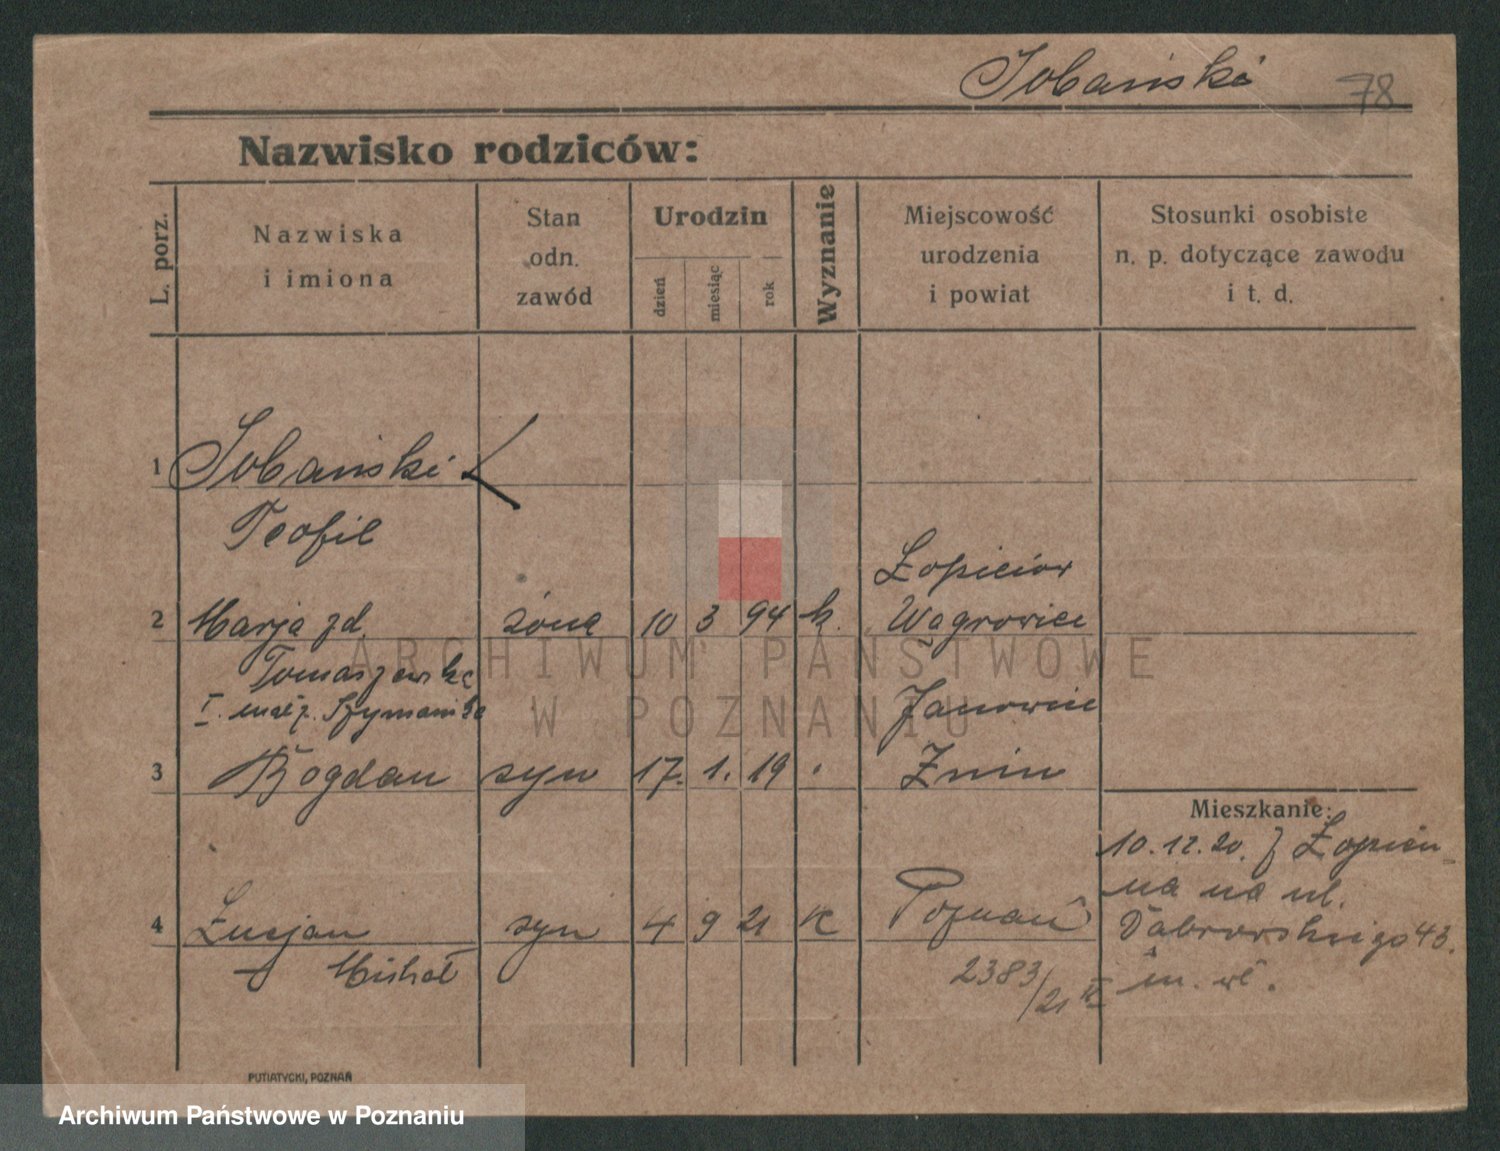 Sobański 78
Nazwisko rodziców:
L. porz.
Nazwiska
i imiona
Stan
odn.
zawód
Urodzin
dzień
miesiąc
rok
Wyznanie
Miejscowość
urodzenia
i powiat
Stosunki osobiste
n. p. dotyczące zawodu
i t. d.
1 Sobański
Teofil
Łopieciox
2 Marja zd. żona 10 3 94 k. Wągrowiec
Tomaszewska
I. małż. Szymańska Janowiec
3 Bogdan syn 17. 1. 19 Żnin
Mieszkanie:
10.12.20. z Łopien
na na ul.
4 Lucjan syn 4 9 21 k Poznań Dąbrowskiego 43.
Michał 2383/21 II m. wł.
PUTIATYCKI, POZNAŃ
ARCHIWUM PAŃSTWOWE
W POZNANIU
Archiwum Państwowe w Poznaniu